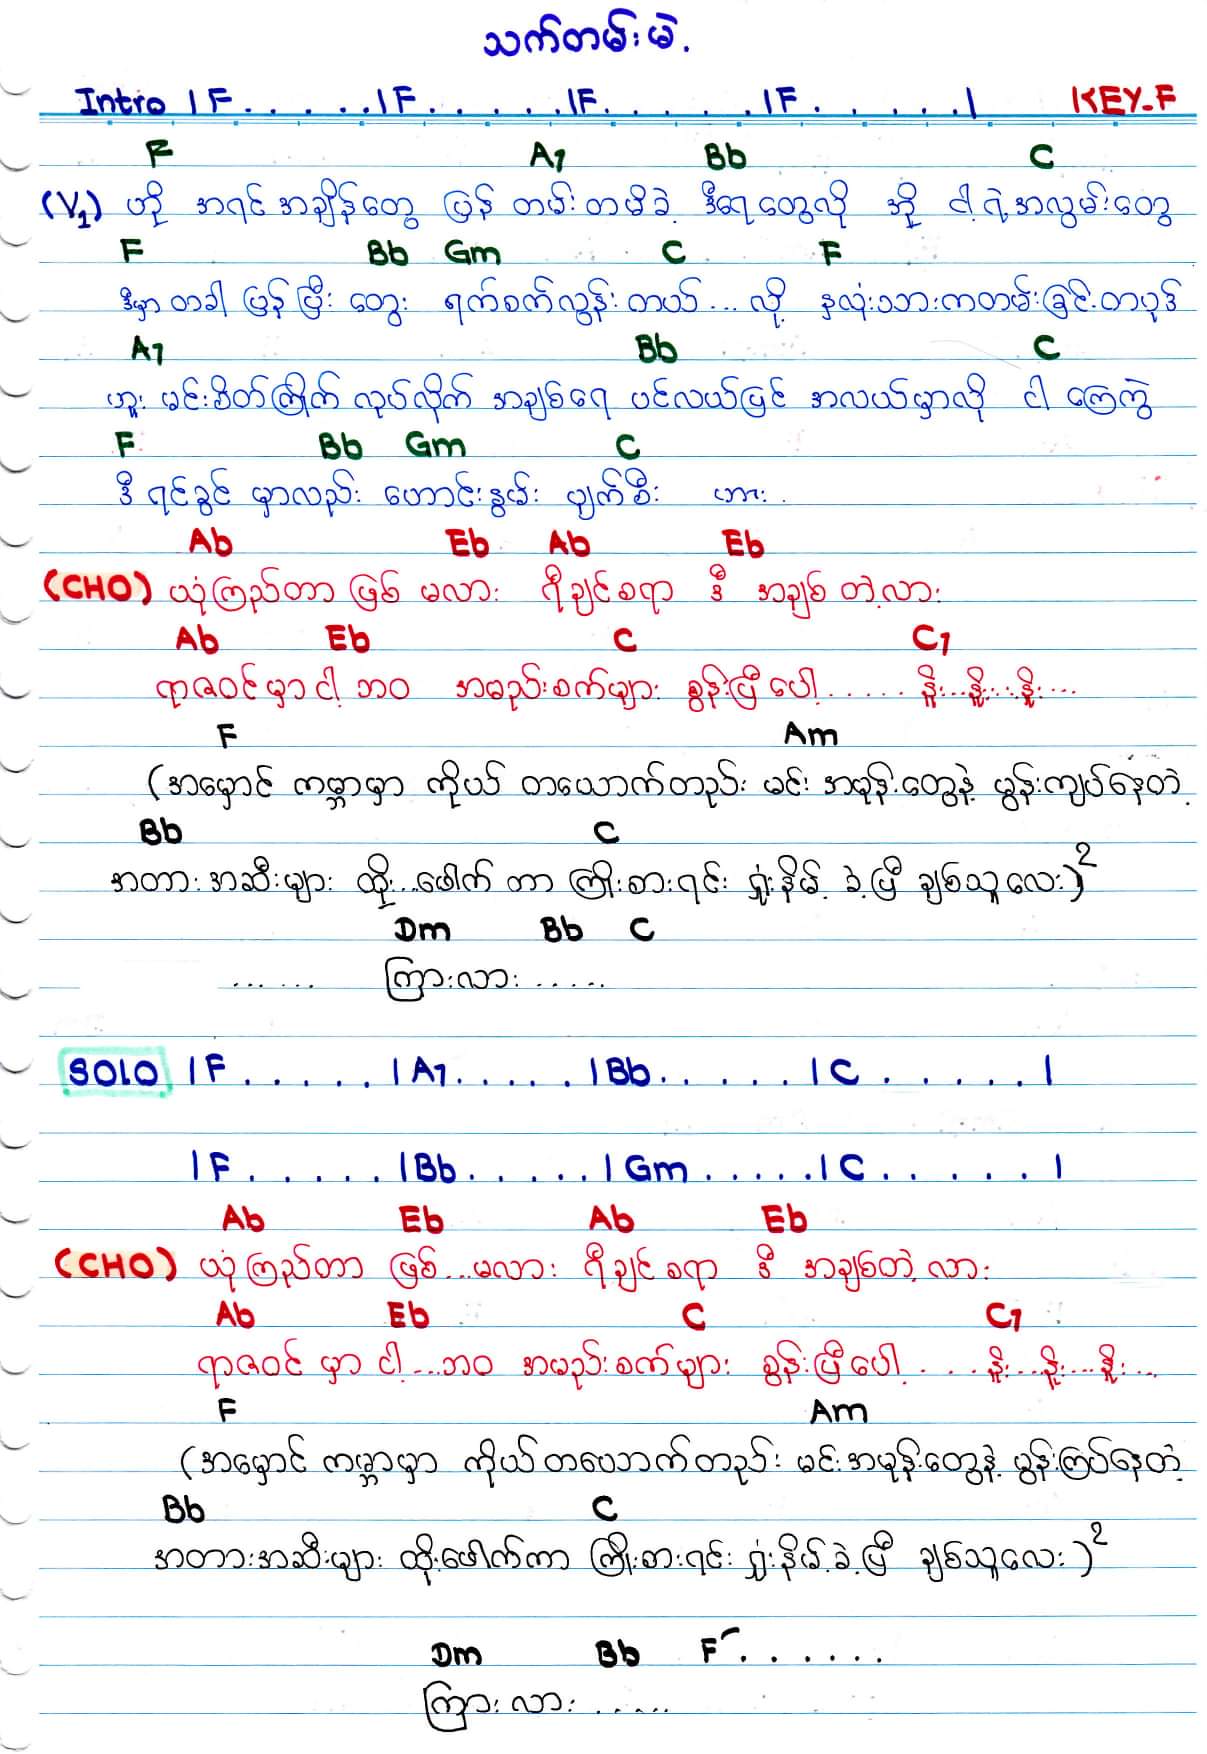 သက်တမ်းမဲ့
Intro | F . . . . . | F . . . . . . | F . . . . . . | F . . . . . . | KEY-F
F A7 Bb C
(V1) ဟို အရင် အချိန်တွေ ပြန် တမ်းတမိခဲ့ ဒီရေတွေလို အို ငါ့ရဲ့အလွမ်းတွေ
F Bb Gm C F
ဒီမှာ တခါ ပြန် ပြီး တွေး ရက်စက်လွန်း တယ် ... လို့ နှလုံးသားကတမ်းခြင်းတပုဒ်
A7 Bb C
ဟူး မင်းစိတ်ကြိုက် လုပ်လိုက် အချစ်ရေ ပင်လယ်ပြင် အလယ်မှာလို ငါ ကြေကွဲ
F Bb Gm C
ဒီ ရင်ခွင် မှာလည်း ဟောင်းနွမ်း ပျက်စီး ဟား .
Ab Eb Ab Eb
(CHO) ယုံကြည်တာ ဖြစ် မလား ရီချင်စရာ ဒီ အချစ် တဲ့လား
Ab Eb C C7
ရာဇဝင်မှာ ငါ့ ဘဝ အမည်းစက်များ စွန်းပြီပေါ့ . . . . . . နိူး...နိူး...နိူး...
F Am
(အမှောင် ကမ္ဘာမှာ ကိုယ် တယောက်တည်း မင်း အမုန်းတွေနဲ့ မွန်းကျပ်နေတဲ့
Bb C
အတား အဆီးများ ထိုး...ဖေါက် တာ ကြိုးစားရင်း ရှုံးနိမ့် ခဲ့ပြီ ချစ်သူလေး)2
Dm Bb C
...... ကြားလား .....
SOLO | F . . . . . | A7 . . . . . | Bb . . . . . | C . . . . . |
| F . . . . . | Bb . . . . . | Gm . . . . . | C . . . . . |
Ab Eb Ab Eb
(CHO) ယုံကြည်တာ ဖြစ်...မလား ရီချင်စရာ ဒီ အချစ်တဲ့ လား
Ab Eb C C7
ရာဇဝင် မှာ ငါ့...ဘဝ အမည်းစက်များ စွန်းပြီပေါ့ . . . . နိူး...နိူး...နိူး...
F Am
(အမှောင် ကမ္ဘာမှာ ကိုယ်တယောက်တည်း မင်းအမုန်းတွေနဲ့ မွန်းကြပ်နေတဲ့
Bb C
အတားအဆီးများ ထိုးဖေါက်ကာ ကြိုးစားရင်း ရှုံးနိမ့်ခဲ့ပြီ ချစ်သူလေး)2
Dm Bb F . . . . . .
ကြားလား .....